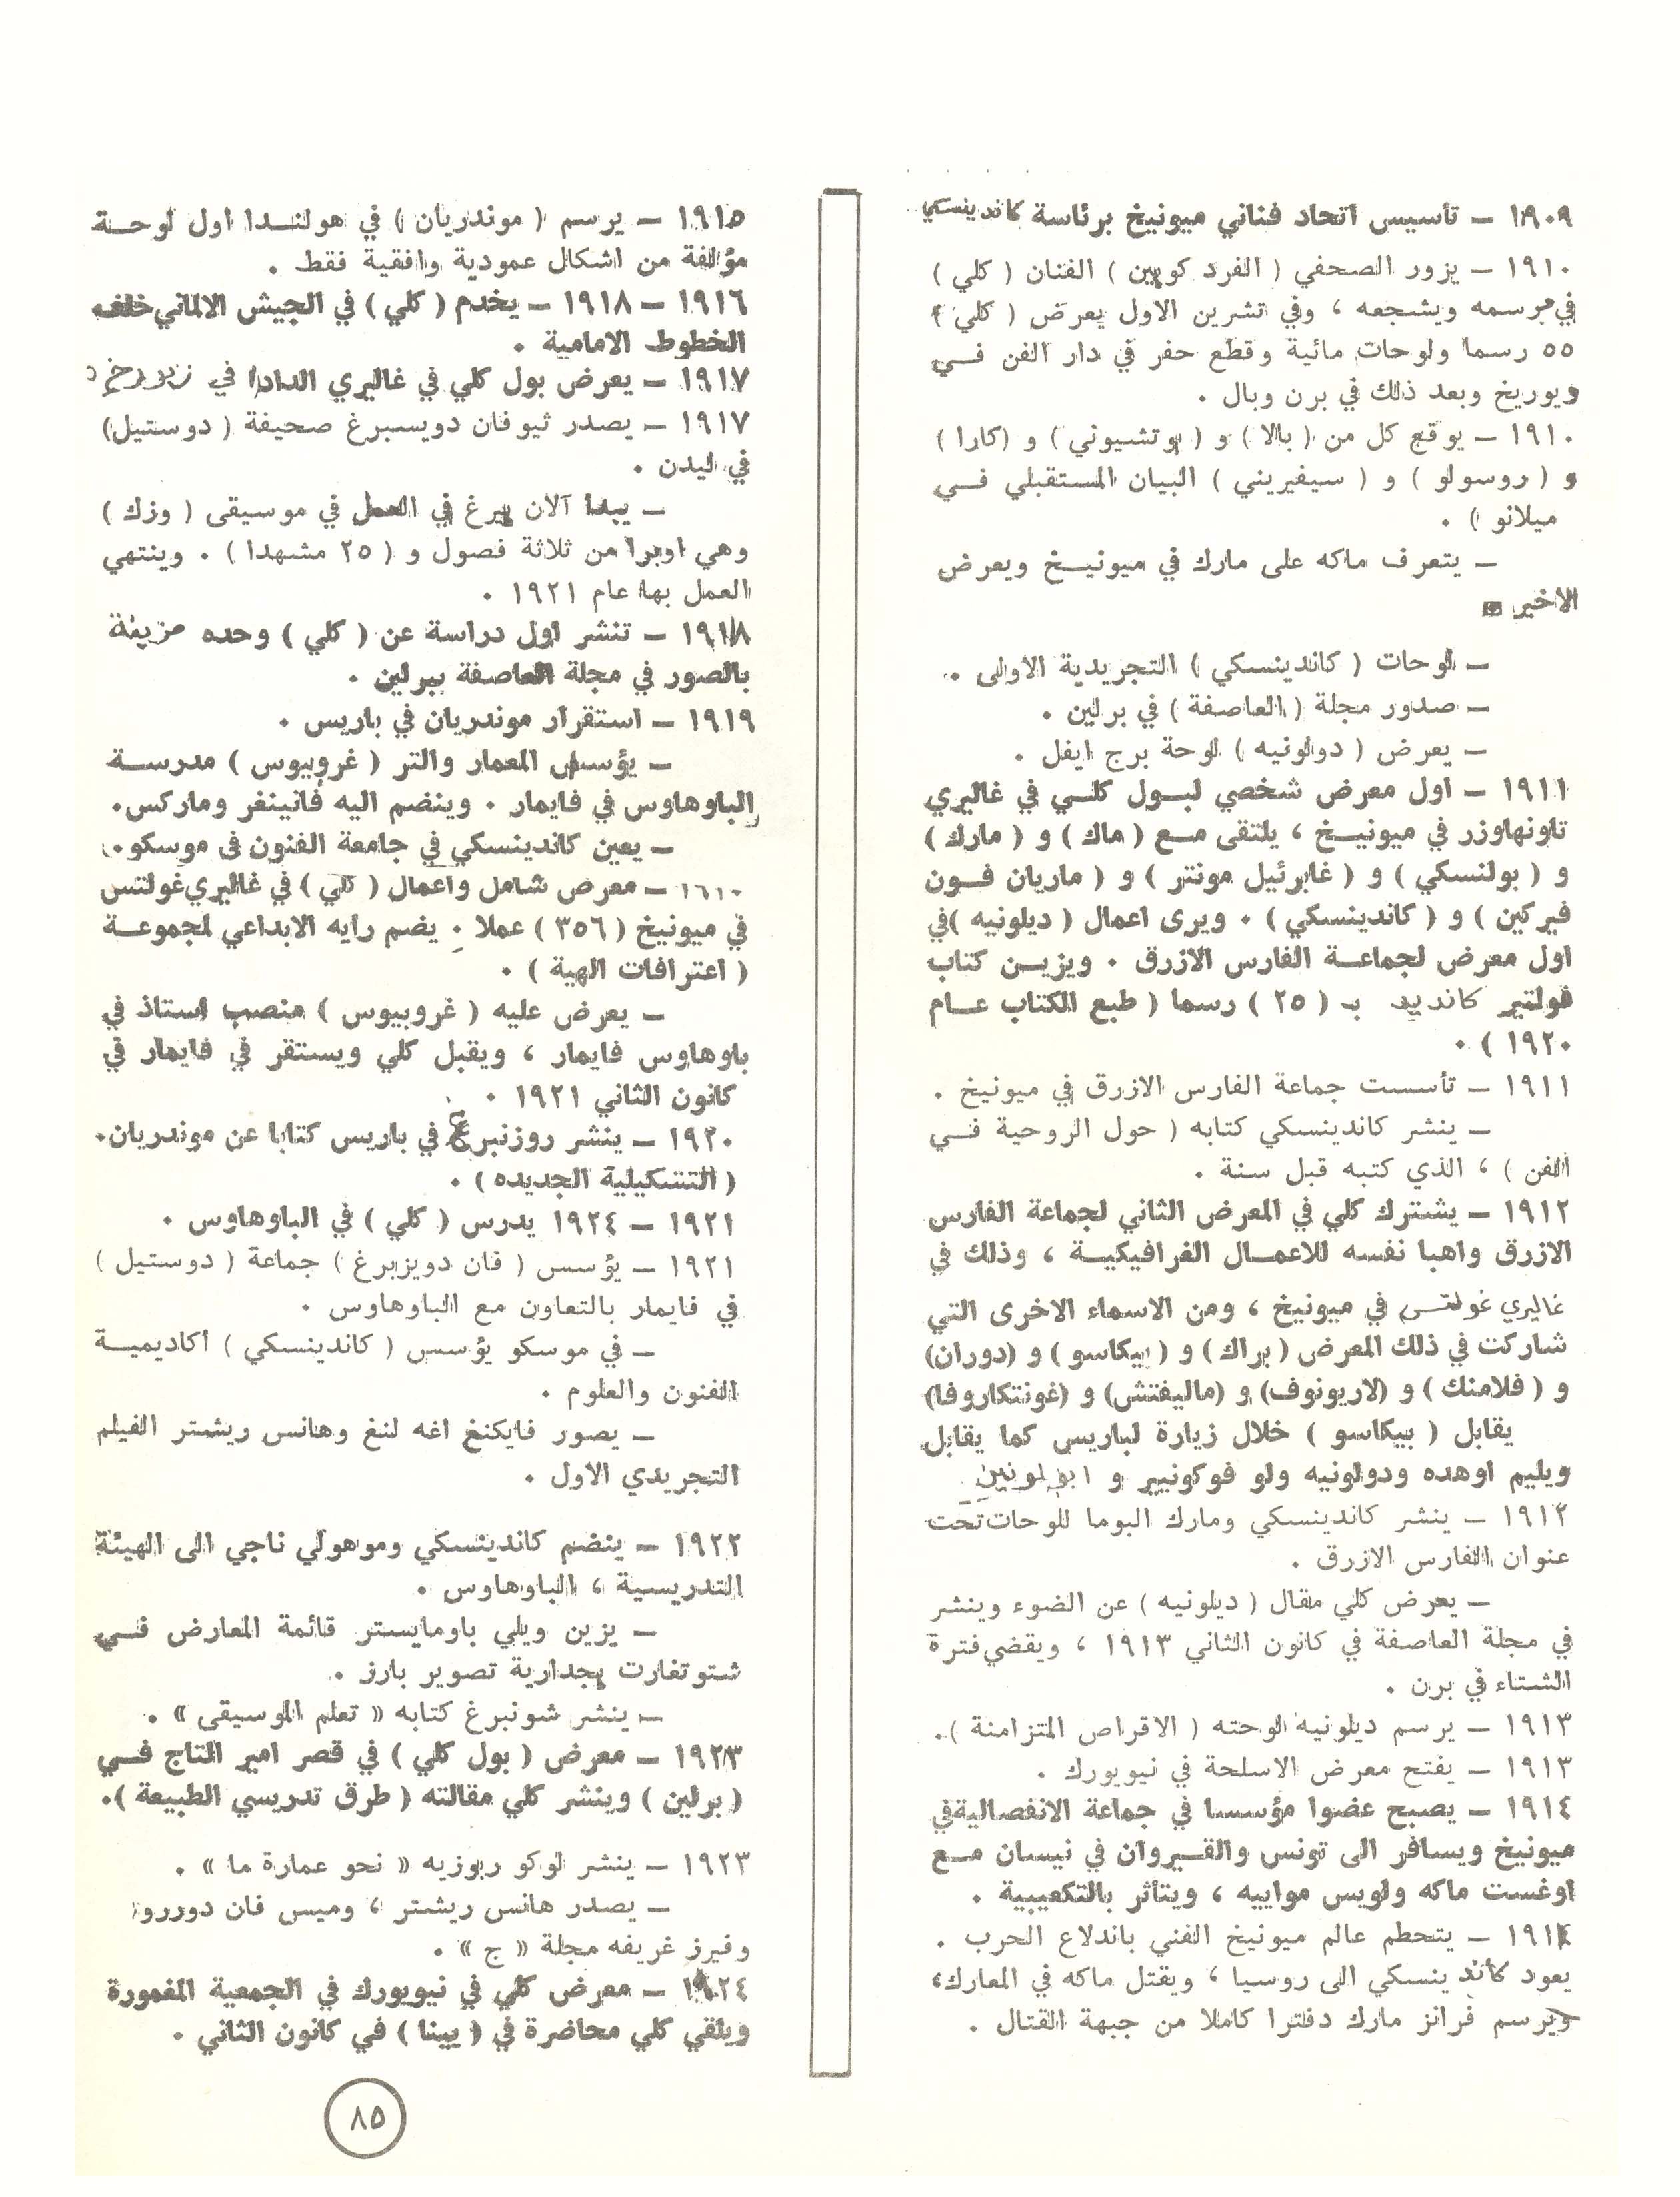 ١٩٠٩ ــ تأسيس اتحاد فناني ميونيخ برئاسة كاندينسكي
١٩١٠ ــ يزور الصحفي ( الفرد كوبين ) الفنان ( كلي )
في مرسمه ويشجعه ، وفي تشرين الاول يعرض ( كلي )
٥٥ رسما ولوحات مائية وقطع حفر في دار الفن فــي
زيوريخ وبعد ذلك في برن وبال .
١٩١٠ ــ يوقع كل من ( بالا ) و ( بوتشيوني ) و (كارا )
و ( روسولو ) و ( سيفيريني ) البيان المستقبلي فــي
ميلانو ) .
ــ يتعرف ماكه على مارك في ميونيــخ ويعرض
الاخير
ــ لوحات ( كاندينسكي ) التجريدية الاولى .
ــ صدور مجلة ( العاصفة ) في برلين .
ــ يعرض ( دولونيه ) لوحة برج ايفل .
١٩١١ ــ اول معرض شخصي لبــول كلــي في غاليري
تاونهاوزر في ميونيــخ ، يلتقى مــع ( ماك ) و ( مارك )
و ( بولنسكي ) و ( غابرئيل مونتر ) و ( ماريان فــون
فيركين ) و ( كاندينسكي ) . ويرى اعمال ( ديلونيه )في
اول معرض لجماعــة الفارس الازرق . ويزيــن كتاب
فولتير كانديد بـ ( ٢٥ ) رسما ( طبع الكتاب عــام
١٩٢٠ ) .
١٩١١ ــ تأسست جماعة الفارس الازرق في ميونيخ .
ــ ينشر كاندينسكي كتابه ( حول الروحية فــي
الفن ) ، الذي كتبه قبل سنة .
١٩١٢ ــ يشترك كلي في المعرض الثاني لجماعة الفارس
الازرق واهبا نفسه للاعمــال الغرافيكيــة ، وذلك في
غاليري غولتس في ميونيخ ، ومن الاسماء الاخرى التي
شاركت في ذلك المعرض ( براك ) و ( بيكاسو ) و (دوران)
و ( فلامنك ) و (لاريونوف) و (ماليفتش) و (غونتكاروفا)
يقابل ( بيكاسو ) خلال زيارة لباريس كما يقابل
ويليم اوهده ودولونيه ولو فوكونيير و ابولونين
١٩١٢ ــ ينشر كاندينسكي ومارك البوما للوحات تحت
عنوان الفارس الازرق .
ــ يعرض كلي مقال ( ديلونيه ) عن الضوء وينشر
في مجلة العاصفة في كانون الثاني ١٩١٣ ، ويقضي فترة
الشتاء في برن .
١٩١٣ ــ يرسم ديلونيه لوحته ( الاقراص المتزامنة ).
١٩١٣ ــ يفتح معرض الاسلحة في نيويورك .
١٩١٤ ــ يصبح عضوا مؤسسا في جماعة الانفصالية في
ميونيخ ويسافر الى تونس والقيروان في نيسان مــع
اوغست ماكه ولويس موابيه ، ويتأثر بالتكعيبية .
١٩١٤ ــ يتحطم عالم ميونيخ الفني باندلاع الحرب .
يعود كاندينسكي الى روسيا ، ويقتل ماكه في المعارك،
ويرسم فرانز مارك دفترا كاملا من جبهة القتال .
١٩١٥ ــ يرسم ( موندريان ) في هولنــدا اول لوحــة
مؤلفة من اشكال عمودية وافقية فقط .
١٩١٦ ــ ١٩١٨ ــ يخدم ( كلي ) في الجيش الالماني خلف
الخطوط الامامية .
١٩١٧ ــ يعرض بول كلي في غاليري الدادا في زيورخ
١٩١٧ ــ يصدر ثيو فان دويسبرغ صحيفة ( دوستيل)
في ليدن .
ــ يبدا آلان بيرغ في العمل في موسيقى ( وزك )
وهي اوبرا من ثلاثة فصول و ( ٢٥ مشهدا ) . وينتهي
العمل بها عام ١٩٢١ .
١٩١٨ ــ تنشر اول دراسة عن ( كلي ) وحده مزينة
بالصور في مجلة العاصفة ببرلين .
١٩١٩ ــ استقرار موندريان في باريس .
ــ يؤسس المعمار والتر ( غروبيوس ) مدرســة
الباوهاوس في فايمار . وينضم اليه فانينفر وماركس.
ــ يعين كاندينسكي في جامعة الفنون فى موسكو.
١٦١٠ ــ معرض شامل واعمال ( كلي ) في غاليري غولتس
في ميونيخ ( ٣٥٦ ) عملا . يضم رايه الابداعي لمجموعــة
( اعترافات الهية ) .
ــ يعرض عليه ( غروبيوس ) منصب استاذ في
باوهاوس فايمار ، ويقبل كلي ويستقر في فايمار في
كانون الثاني ١٩٢١ .
١٩٢٠ ــ ينشر روزنبرغ في باريس كتابا عن موندريان.
( التشكيلية الجديده ) .
١٩٢١ ــ ١٩٢٤ يدرس ( كلي ) في الباوهاوس .
١٩٢١ ــ يؤسس ( فان دويزبرغ ) جماعة ( دوستيل )
في فايمار بالتعاون مع الباوهاوس .
ــ في موسكو يؤسس ( كاندينسكي ) اكاديميــة
الفنون والعلوم .
ــ يصور فايكنغ اغه لنغ وهانس ريشتر الفيلم
التجريدي الاول .
١٩٢٢ ــ ينضم كاندينسكي وموهولي ناجي الى الهيئة
التدريسية ، الباوهاوس .
ــ يزين ويلي باومايستر قائمة المعارض فــي
شتوتغارت بجدارية تصوير بارز .
ــ ينشر شونبرغ كتابه « تعلم الموسيقى » .
١٩٢٣ ــ معرض ( بول كلي ) في قصر امير التاج فــي
( برلين ) وينشر كلي مقالته ( طرق تدريسي الطبيعة ).
١٩٢٣ ــ ينشر لوكو ربوزيه « نحو عمارة ما » .
ــ يصدر هانس ريشتر ، وميس فان دوررو
وفيرز غريفه مجلة « ج » .
١٩٢٤ ــ معرض كلي في نيويورك في الجمعية المغمورة
ويلقي كلي محاضرة في ( يينا ) في كانون الثاني .
٨٥